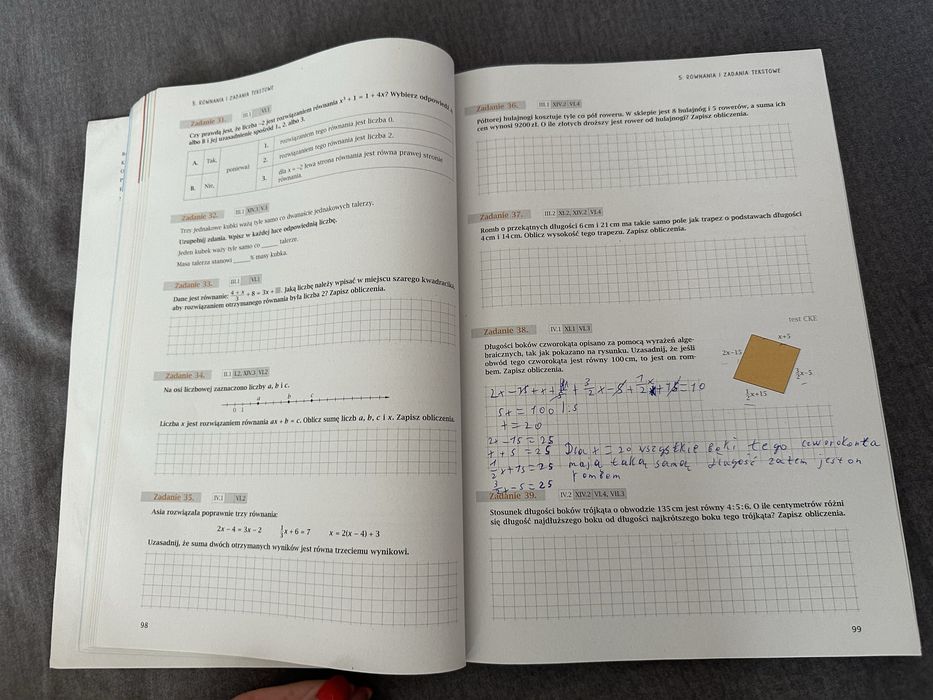 5. RÓWNANIA I ZADANIA TEKSTOWE
Zadanie 31. III.1 VI.1
Czy prawdą jest, że liczba –2 jest rozwiązaniem równania x³ + 1 = 1 + 4x? Wybierz odpowiedź A
albo B i jej uzasadnienie spośród 1., 2. albo 3.
A. Tak,
B. Nie,
ponieważ
1. rozwiązaniem tego równania jest liczba 0.
2. rozwiązaniem tego równania jest liczba 2.
3. dla x = –2 lewa strona równania jest równa prawej stronie
równania.
Zadanie 32. III.1 XIV.3 V.1
Trzy jednakowe kubki ważą tyle samo co dwanaście jednakowych talerzy.
Uzupełnij zdania. Wpisz w każdej luce odpowiednią liczbę.
Jeden kubek waży tyle samo co _____ talerze.
Masa talerza stanowi _____% masy kubka.
Zadanie 33. III.1 VI.1
Dane jest równanie: (4 + x)/3 + 8 = 3x + ■. Jaką liczbę należy wpisać w miejscu szarego kwadracika,
aby rozwiązaniem otrzymanego równania była liczba 2? Zapisz obliczenia.
Zadanie 34. II.1 I.2, XIV.3 VI.2
Na osi liczbowej zaznaczono liczby a, b i c.
a b c
0 1
Liczba x jest rozwiązaniem równania ax + b = c. Oblicz sumę liczb a, b, c i x. Zapisz obliczenia.
Zadanie 35. IV.1 VI.2
Asia rozwiązała poprawnie trzy równania:
2x – 4 = 3x – 2 1/3x + 6 = 7 x = 2(x – 4) + 3
Uzasadnij, że suma dwóch otrzymanych wyników jest równa trzeciemu wynikowi.
98
5. RÓWNANIA I ZADANIA TEKSTOWE
Zadanie 36. III.1 XIV.2 VI.4
Półtorej hulajnogi kosztuje tyle co pół roweru. W sklepie jest 8 hulajnóg i 5 rowerów, a suma ich
cen wynosi 9200 zł. O ile złotych droższy jest rower od hulajnogi? Zapisz obliczenia.
Zadanie 37. III.2 XI.2, XIV.2 VI.4
Romb o przekątnych długości 6 cm i 21 cm ma takie samo pole jak trapez o podstawach długości
4 cm i 14 cm. Oblicz wysokość tego trapezu. Zapisz obliczenia.
test CKE
Zadanie 38. IV.1 XI.1 VI.3
Długości boków czworokąta opisano za pomocą wyrażeń alge-
braicznych, tak jak pokazano na rysunku. Uzasadnij, że jeśli
obwód tego czworokąta jest równy 100 cm, to jest on rom-
bem. Zapisz obliczenia.
x+5
2x–15
3/2x–5
1/2x+15
5x = 100 |:5
x = 20
2x – 15 = 25
x + 5 = 25 Dla x = 20 wszystkie boki tego czworokąta
1/2x + 15 = 25 mają taką samą długość zatem jest on
3/2x – 5 = 25 rombem
Zadanie 39. IV.2 XIV.2 VI.4, VII.3
Stosunek długości boków trójkąta o obwodzie 135 cm jest równy 4 : 5 : 6. O ile centymetrów różni
się długość najdłuższego boku od długości najkrótszego boku tego trójkąta? Zapisz obliczenia.
99